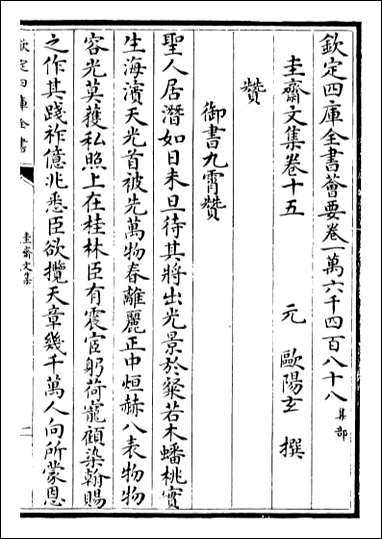 欽定四庫全書薈要卷一萬六千四百八十八集部
圭齋文集卷十五
元 歐陽玄 撰
贊
御書九霄贊
聖人居潛如日未旦待其將出光景於粲若木蟠桃實
生海濱天光首被先萬物春離麗正中烜赫八表物物
容光莫獲私照上在桂林臣有震宦躬荷寵顧染翰賜
之作其踐祚億兆悉臣欲攬天章幾千萬人向所蒙恩
欽定四庫全書
圭齋文集
一